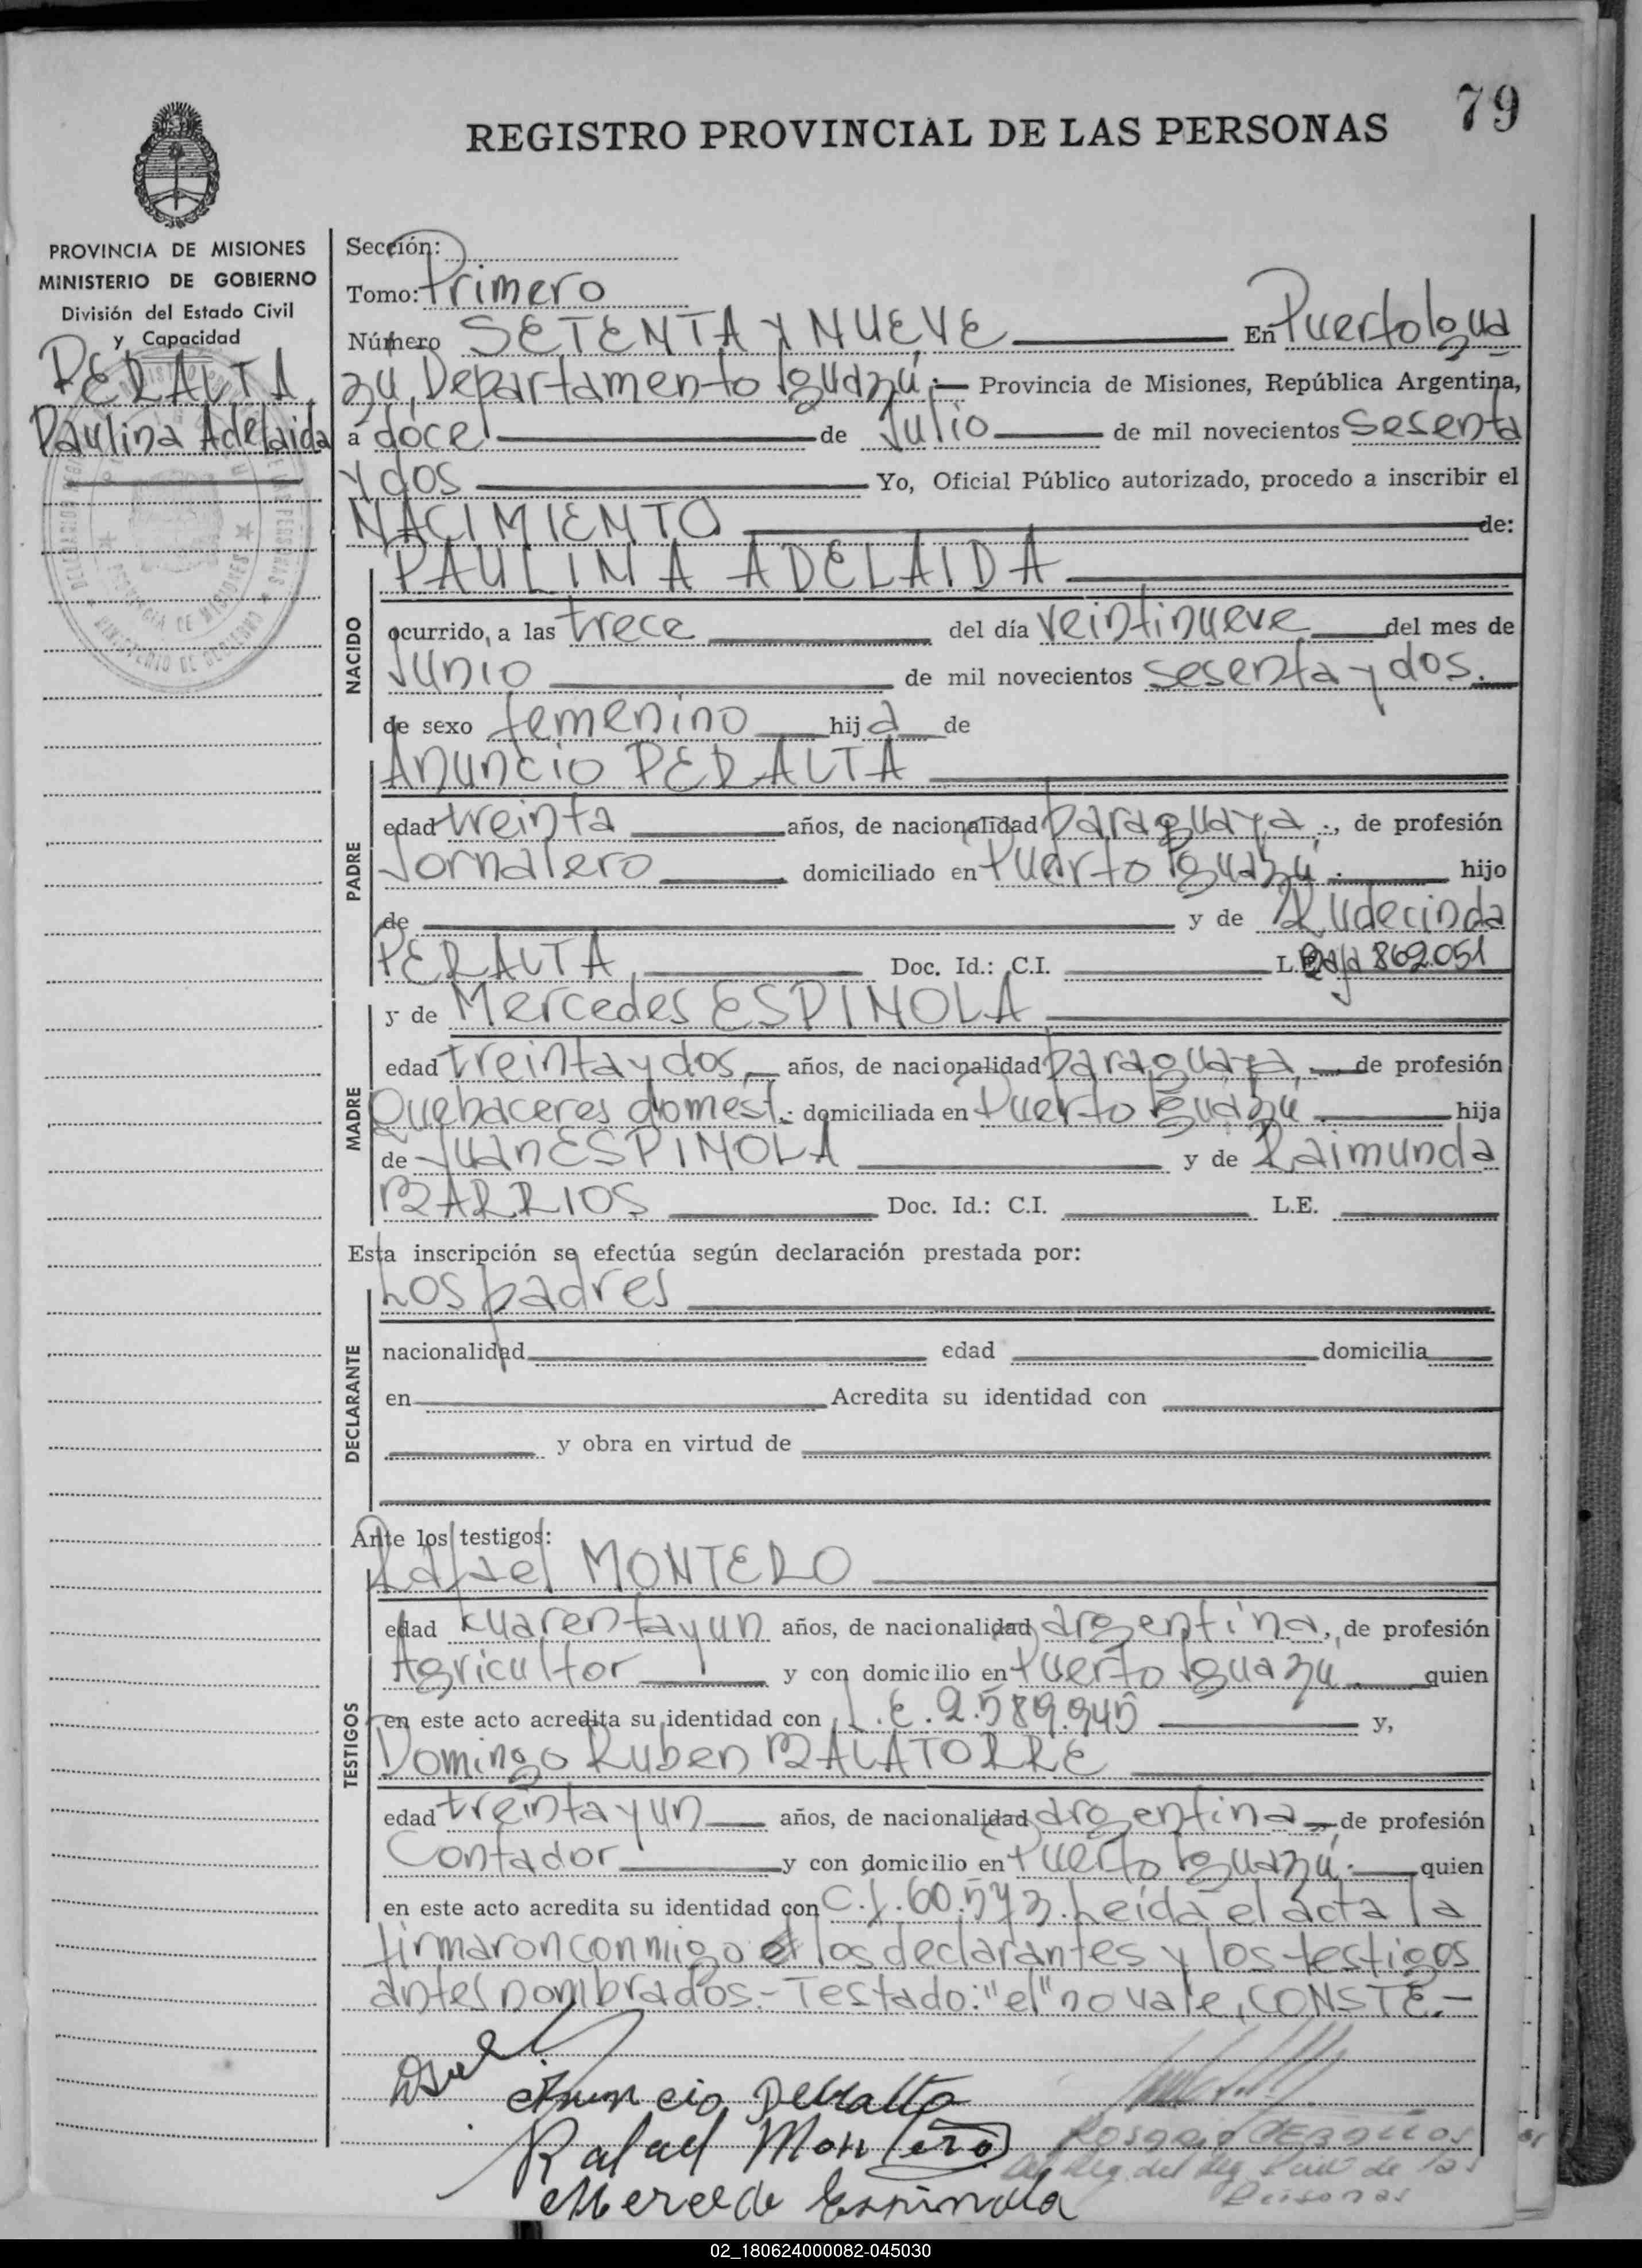 79
REGISTRO PROVINCIAL DE LAS PERSONAS
PROVINCIA DE MISIONES
MINISTERIO DE GOBIERNO
División del Estado Civil
y Capacidad
PERALTA,
Paulina Adelaida
Sección:
Tomo: Primero
Número SETENTA Y NUEVE En Puerto Igua
zú, Departamento Iguazú.- Provincia de Misiones, República Argentina,
a doce de Julio de mil novecientos sesenta
y dos Yo, Oficial Público autorizado, procedo a inscribir el
NACIMIENTO de:
NACIDO
PAULINA ADELAIDA
ocurrido, a las trece del día veintinueve del mes de
Junio de mil novecientos sesenta y dos.
de sexo femenino hija de
PADRE
Anuncio PERALTA
edad treinta años, de nacionalidad paraguaya., de profesión
Jornalero domiciliado en Puerto Iguazú. hijo
de y de Rudecinda
PERALTA, Doc. Id.: C.I. L.E. 862.051
MADRE
y de Mercedes ESPINOLA
edad treinta y dos, años, de nacionalidad paraguaya, de profesión
Quehaceres domest.: domiciliada en Puerto Iguazú hija
de Juan ESPINOLA y de Raimunda
BARRIOS Doc. Id.: C.I. L.E.
Esta inscripción se efectúa según declaración prestada por:
DECLARANTE
Los padres
nacionalidad edad domicilia
en Acredita su identidad con
y obra en virtud de
Ante los testigos:
TESTIGOS
Rafael MONTERO
edad kuarenta y un años, de nacionalidad argentina, de profesión
Agricultor y con domicilio en Puerto Iguazú. quien
en este acto acredita su identidad con L.E. 2.589.945 y,
Domingo Ruben BALATORRE
edad treinta y un años, de nacionalidad argentina, de profesión
Contador y con domicilio en Puerto Iguazú. quien
en este acto acredita su identidad con C.I. 60.573. Leída el acta la
firmaron conmigo el los declarantes y los testigos
antes nombrados.- Testado: "el" no vale, CONSTE.-
Anuncio Peralta
Rafael Montero
Mercede Espinola
de las
Personas
02_180624000082-045030